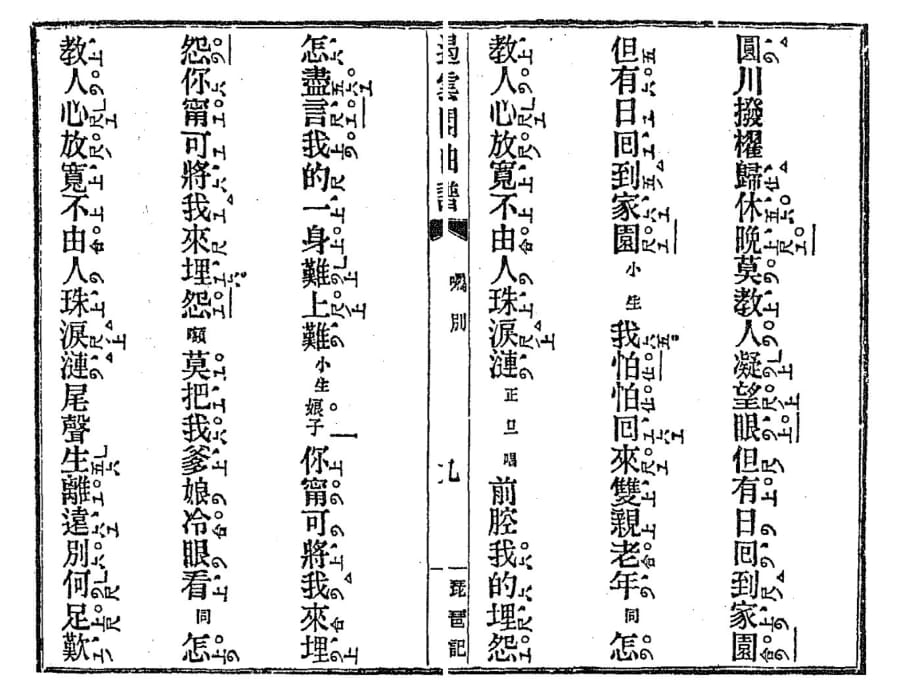 圓川撥櫂歸休晚莫教人凝望眼但有日囘到家園
但有日囘到家園小生我怕怕囘來雙親老年同怎
教人心放寬不由人珠淚漣正旦唱前腔我的埋怨
遏雲閣曲譜 別 九 琵琶記
怎盡言我的一身難上難小生娘子你甯可將我來埋
怨你甯可將我來埋怨 莫把我爹娘冷眼看同怎
教人心放寬不由人珠淚漣尾聲生離遠別何足歎